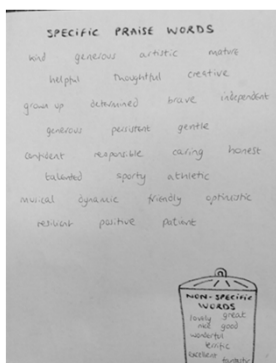 SPECIFIC PRAISE WORDS
kind generous artistic mature
helpful thoughtful creative
grown up determined brave independent
generous persistent gentle
confident responsible caring honest
talented sporty athletic
musical dynamic friendly optimistic
resilient positive patient
NON-SPECIFIC
WORDS
lovely great
nice good
wonderful
terrific
excellent
fantastic